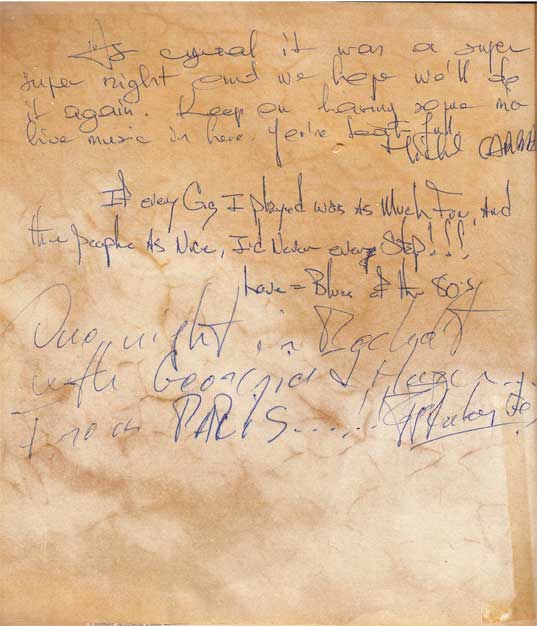 As usual it was a super
super night and we hope we'll do
it again. Keep on having some mo
live music in here you're beatifull
If every Gig I played was As Much Fun, And
the people As Nice, I'd Never ever Stop!!!
Love = Blues of the 80's
One night in
with Georgia &
From PARIS.....!